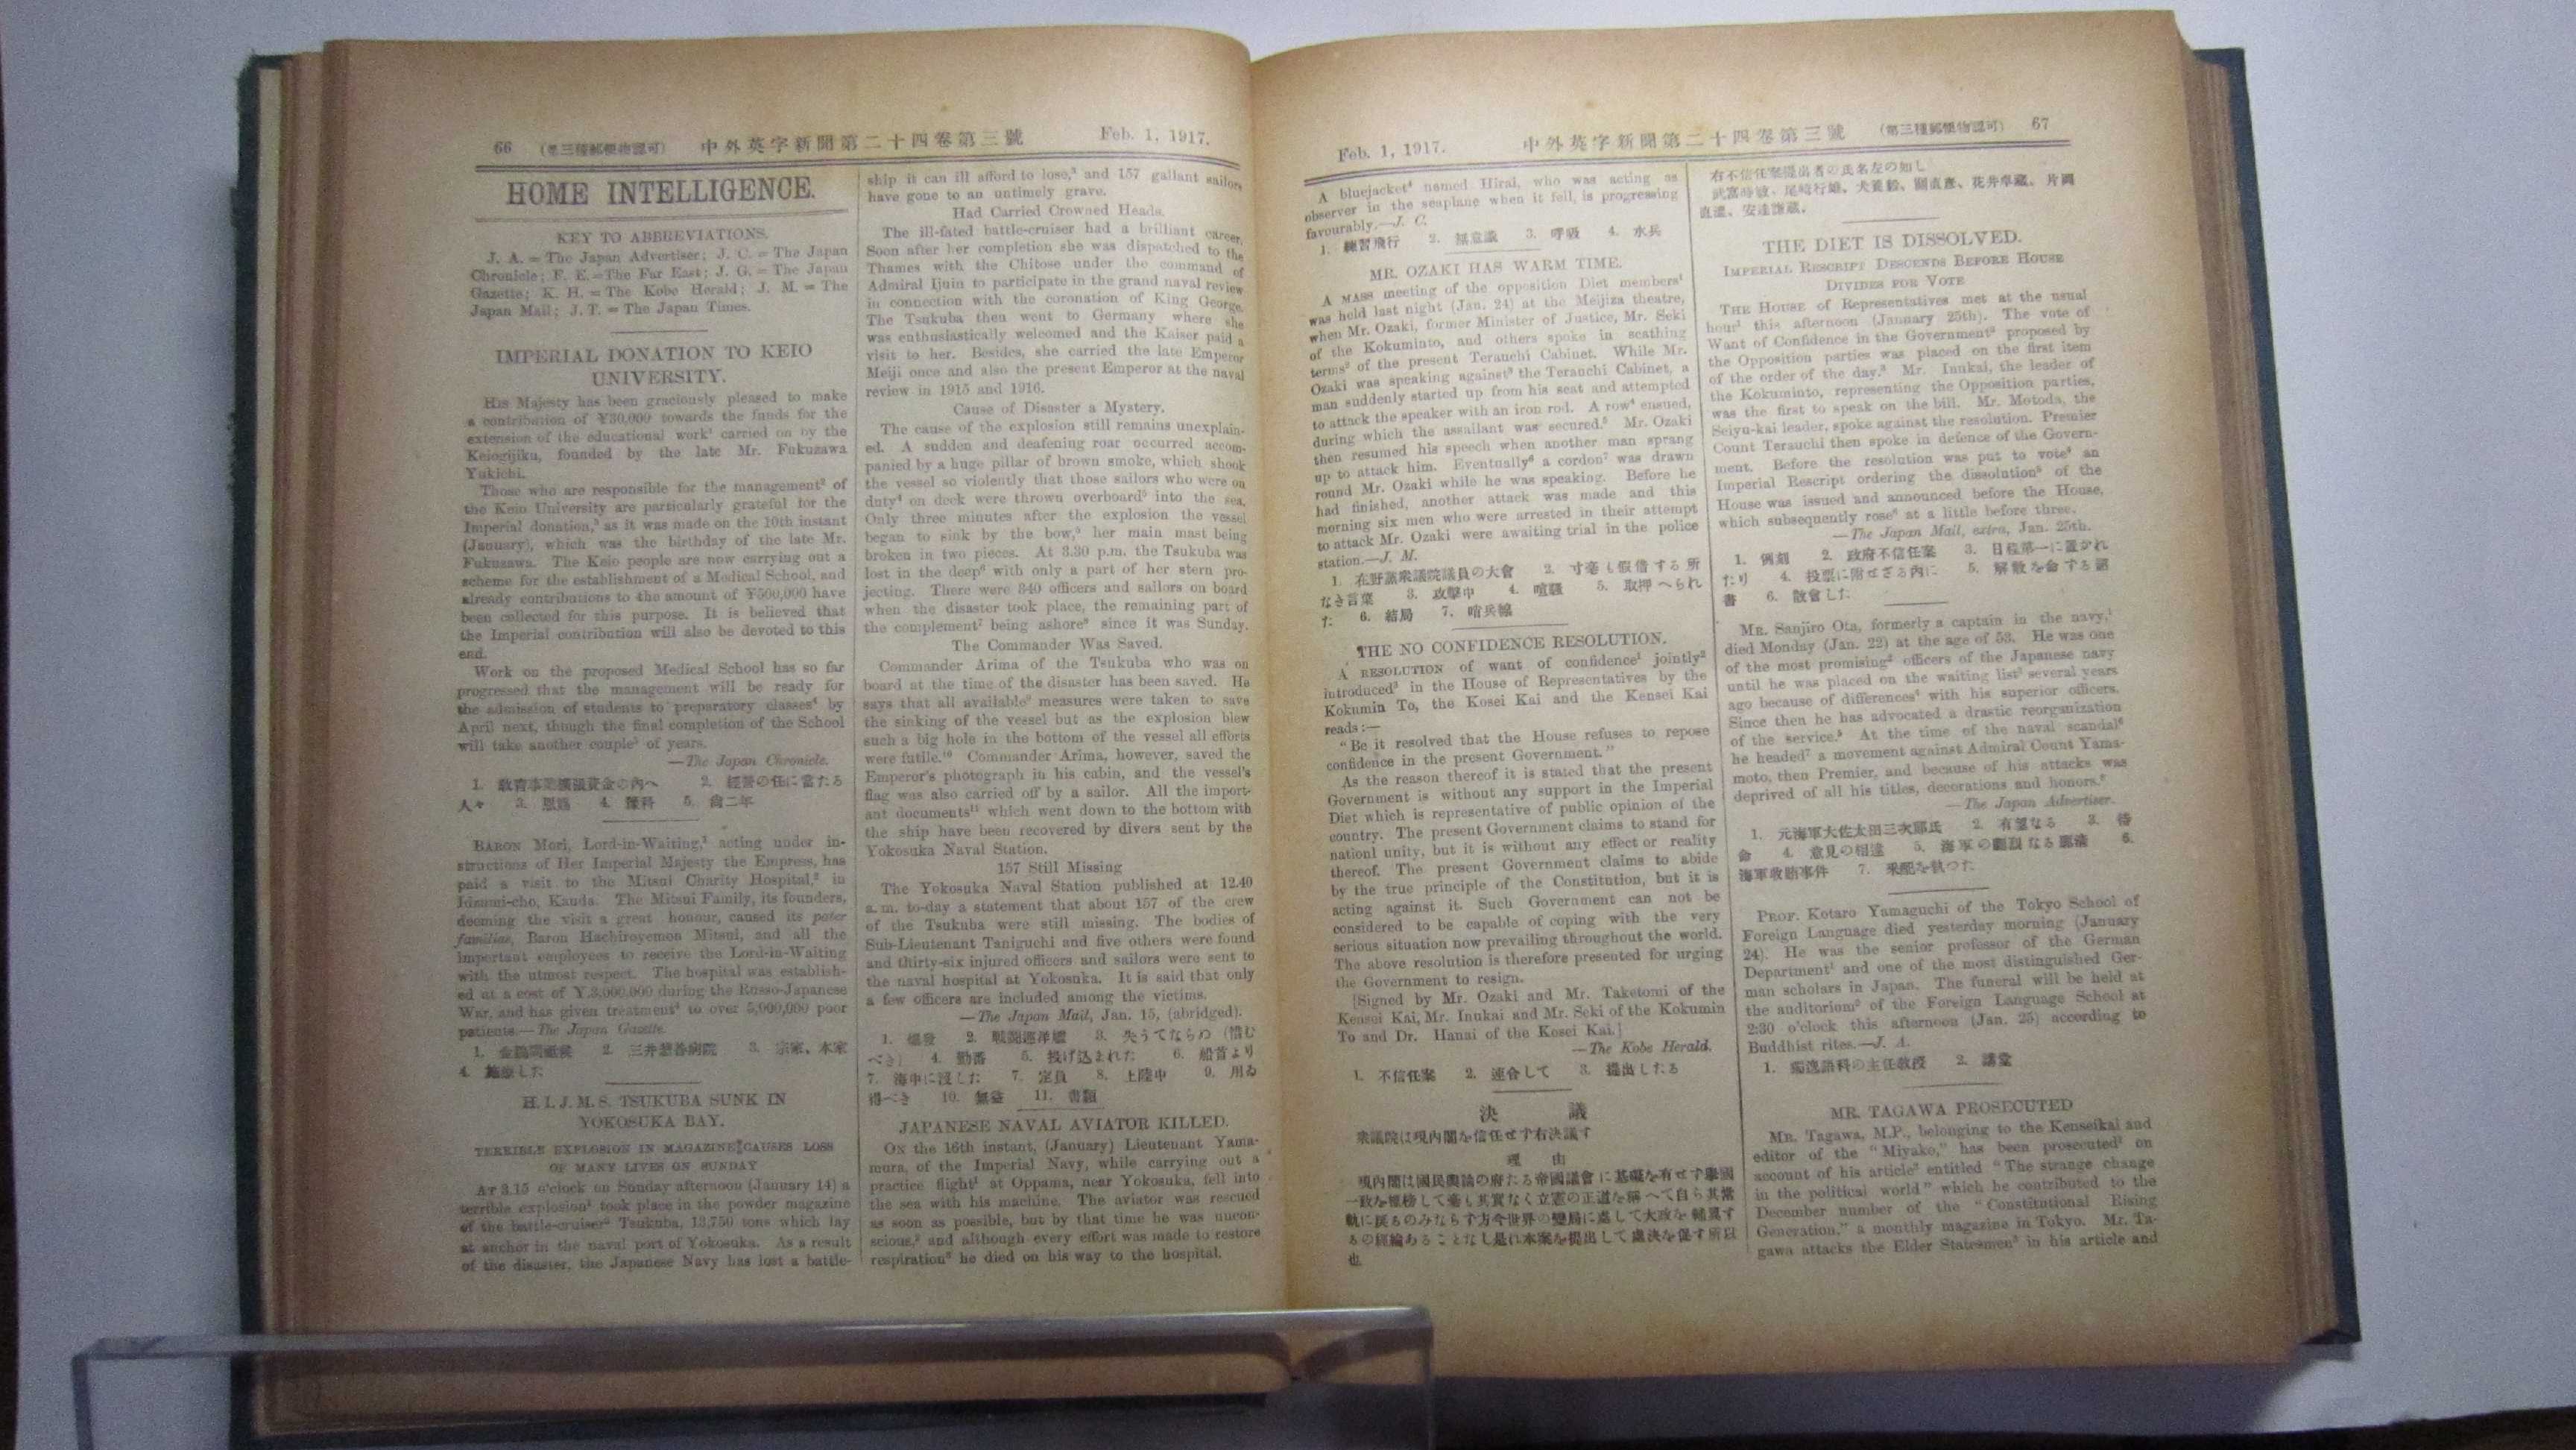 66 (第三種郵便物認可) 中外英字新聞第二十四卷第三號 Feb. 1, 1917.
HOME INTELLIGENCE.
KEY TO ABBREVIATIONS.
J. A. = The Japan Advertiser; J. C. = The Japan
Chronicle; F. E. = The Far East; J. G. = The Japan
Gazette; K. H. = The Kobe Herald; J. M. = The
Japan Mail; J. T. = The Japan Times.
IMPERIAL DONATION TO KEIO
UNIVERSITY.
HIS Majesty has been graciously pleased to make
a contribution of ¥30,000 towards the funds for the
extension of the educational work¹ carried on by the
Keiogijiku, founded by the late Mr. Fukuzawa
Yukichi.
Those who are responsible for the management² of
the Keio University are particularly grateful for the
Imperial donation,³ as it was made on the 10th instant
(January), which was the birthday of the late Mr.
Fukuzawa. The Keio people are now carrying out a
scheme for the establishment of a Medical School, and
already contributions to the amount of ¥500,000 have
been collected for this purpose. It is believed that
the Imperial contribution will also be devoted to this
end.
Work on the proposed Medical School has so far
progressed that the management will be ready for
the admission of students to preparatory classes⁴ by
April next, though the final completion of the School
will take another couple⁵ of years.
—The Japan Chronicle.
1. 教育事業擴張資金の內へ 2. 經營の任に當たる
人々 3. 恩賜 4. 豫科 5. 尙二年
BARON Mori, Lord-in-Waiting,¹ acting under in-
structions of Her Imperial Majesty the Empress, has
paid a visit to the Mitsui Charity Hospital,² in
Idzumi-cho, Kanda. The Mitsui Family, its founders,
deeming the visit a great honour, caused its pater
familias, Baron Hachiroyemon Mitsui, and all the
important employees to receive the Lord-in-Waiting
with the utmost respect. The hospital was establish-
ed at a cost of Y.3,000,000 during the Russo-Japanese
War, and has given treatment⁴ to over 5,000,000 poor
patients.—The Japan Gazette.
1. 2. 三井慈善病院 3. 宗家、本家
4. 施療した
H. I. J. M. S. TSUKUBA SUNK IN
YOKOSUKA BAY.
TERRIBLE EXPLOSION IN MAGAZINE CAUSES LOSS
OF MANY LIVES ON SUNDAY
AT 3.15 o'clock on Sunday afternoon (January 14) a
terrible explosion¹ took place in the powder magazine
of the battle-cruiser² Tsukuba, 13,750 tons which lay
at anchor in the naval port of Yokosuka. As a result
of the disaster, the Japanese Navy has lost a battle-
ship it can ill afford to lose,³ and 157 gallant sailors
have gone to an untimely grave.
Had Carried Crowned Heads.
The ill-fated battle-cruiser had a brilliant career.
Soon after her completion she was dispatched to the
Thames with the Chitose under the command of
Admiral Ijuin to participate in the grand naval review
in connection with the coronation of King George.
The Tsukuba then went to Germany where she
was enthusiastically welcomed and the Kaiser paid a
visit to her. Besides, she carried the late Emperor
Meiji once and also the present Emperor at the naval
review in 1915 and 1916.
Cause of Disaster a Mystery.
The cause of the explosion still remains unexplain-
ed. A sudden and deafening roar occurred accom-
panied by a huge pillar of brown smoke, which shook
the vessel so violently that those sailors who were on
duty⁴ on deck were thrown overboard⁵ into the sea.
Only three minutes after the explosion the vessel
began to sink by the bow,⁶ her main mast being
broken in two pieces. At 3.30 p.m. the Tsukuba was
lost in the deep⁶ with only a part of her stern pro-
jecting. There were 340 officers and sailors on board
when the disaster took place, the remaining part of
the complement⁷ being ashore⁸ since it was Sunday.
The Commander Was Saved.
Commander Arima of the Tsukuba who was on
board at the time of the disaster has been saved. He
says that all available⁹ measures were taken to save
the sinking of the vessel but as the explosion blew
such a big hole in the bottom of the vessel all efforts
were futile.¹⁰ Commander Arima, however, saved the
Emperor's photograph in his cabin, and the vessel's
flag was also carried off by a sailor. All the import-
ant documents¹¹ which went down to the bottom with
the ship have been recovered by divers sent by the
Yokosuka Naval Station.
157 Still Missing
The Yokosuka Naval Station published at 12.40
a.m. to-day a statement that about 157 of the crew
of the Tsukuba were still missing. The bodies of
Sub-Lieutenant Taniguchi and five others were found
and thirty-six injured officers and sailors were sent to
the naval hospital at Yokosuka. It is said that only
a few officers are included among the victims.
—The Japan Mail, Jan. 15, (abridged).
1. 爆發 2. 戰鬪巡洋艦 3. 失うてならの (惜む
べき) 4. 勤番 5. 投げ込まれた 6. 船首より
7. 海中に沒した 7. 定員 8. 上陸中 9. 用ゐ
得べき 10. 無益 11. 書類
JAPANESE NAVAL AVIATOR KILLED.
ON the 16th instant, (January) Lieutenant Yama-
mura, of the Imperial Navy, while carrying out a
practice flight¹ at Oppama, near Yokosuka, fell into
the sea with his machine. The aviator was rescued
as soon as possible, but by that time he was uncon-
scious,² and although every effort was made to restore
respiration³ he died on his way to the hospital.
Feb. 1, 1917. 中外英字新聞第二十四卷第三號 (第三種郵便物認可) 67
A bluejacket⁴ named Hirai, who was acting as
observer in the seaplane when it fell, is progressing
favourably.—J. C.
1. 練習飛行 2. 無意識 3. 呼吸 4. 水兵
MR. OZAKI HAS WARM TIME.
A MASS meeting of the opposition Diet members¹
was held last night (Jan. 24) at the Meijiza theatre,
when Mr. Ozaki, former Minister of Justice, Mr. Seki
of the Kokuminto, and others spoke in scathing
terms² of the present Terauchi Cabinet. While Mr.
Ozaki was speaking against³ the Terauchi Cabinet, a
man suddenly started up from his seat and attempted
to attack the speaker with an iron rod. A row⁴ ensued,
during which the assailant was secured.⁵ Mr. Ozaki
then resumed his speech when another man sprang
up to attack him. Eventually⁶ a cordon⁷ was drawn
round Mr. Ozaki while he was speaking. Before he
had finished, another attack was made and this
morning six men who were arrested in their attempt
to attack Mr. Ozaki were awaiting trial in the police
station.—J. M.
1. 在野黨衆議院議員の大會 2. 寸毫も假借する所
なき言葉 3. 攻擊中 4. 喧騷 5. 取押へられ
た 6. 結局 7. 哨兵線
THE NO CONFIDENCE RESOLUTION.
A RESOLUTION of want of confidence¹ jointly²
introduced³ in the House of Representatives by the
Kokumin To, the Kosei Kai and the Kensei Kai
reads:—
"Be it resolved that the House refuses to repose
confidence in the present Government."
As the reason thereof it is stated that the present
Government is without any support in the Imperial
Diet which is representative of public opinion of the
country. The present Government claims to stand for
nationl unity, but it is without any effect or reality
thereof. The present Government claims to abide
by the true principle of the Constitution, but it is
acting against it. Such Government can not be
considered to be capable of coping with the very
serious situation now prevailing throughout the world.
The above resolution is therefore presented for urging
the Government to resign.
[Signed by Mr. Ozaki and Mr. Taketomi of the
Kensei Kai, Mr. Inukai and Mr. Seki of the Kokumin
To and Dr. Hanai of the Kosei Kai.]
—The Kobe Herald.
1. 不信任案 2. 連合して 3. 提出したる
決 議
衆議院は現內閣を信任せず右決議す
理 由
現內閣は國民輿論の府たる帝國議會に基礎を有せず擧國
一致を標榜して毫も其實なく立憲の正道を稱へて自ら其常
軌に戾るのみならず方今世界の變局に處して大政を輔翼す
るの經綸あることなし是れ本案を提出して處決を促す所以
也
右不信任案提出者の氏名左の如し
武富時敏、尾崎行雄、犬養毅、關直彥、花井卓藏、片岡
直溫、安達謙藏、
THE DIET IS DISSOLVED.
IMPERIAL RESCRIPT DESCENDS BEFORE HOUSE
DIVIDES FOR VOTE
THE HOUSE of Representatives met at the usual
hour¹ this afternoon (January 25th). The vote of
Want of Confidence in the Government² proposed by
the Opposition parties was placed on the first item
of the order of the day.³ Mr. Inukai, the leader of
the Kokuminto, representing the Opposition parties,
was the first to speak on the bill. Mr. Motoda, the
Seiyu-kai leader, spoke against the resolution. Premier
Count Terauchi then spoke in defence of the Govern-
ment. Before the resolution was put to vote⁴ an
Imperial Rescript ordering the dissolution⁵ of the
House was issued and announced before the House,
which subsequently rose⁶ at a little before three.
—The Japan Mail, extra, Jan. 25th.
1. 例刻 2. 政府不信任案 3. 日程第一に置かれ
たり 4. 投票に附せざる內に 5. 解散を命する詔
書 6. 散會した
MR. Sanjiro Ota, formerly a captain in the navy,¹
died Monday (Jan. 22) at the age of 53. He was one
of the most promising² officers of the Japanese navy
until he was placed on the waiting list³ several years
ago because of differences⁴ with his superior officers.
Since then he has advocated a drastic reorganization
of the service.⁵ At the time of the naval scandal⁶
he headed⁷ a movement against Admiral Count Yama-
moto, then Premier, and because of his attacks was
deprived of all his titles, decorations and honors.⁸
—The Japan Advertiser.
1. 元海軍大佐太田三次郞氏 2. 有望なる 3. 待
命 4. 意見の相違 5. 海軍の劇烈なる 6.
海軍收賄事件 7. 采配を執つた
PROF. Kotaro Yamaguchi of the Tokyo School of
Foreign Language died yesterday morning (January
24). He was the senior professor of the German
Department¹ and one of the most distinguished Ger-
man scholars in Japan. The funeral will be held at
the auditorium² of the Foreign Language School at
2:30 o'clock this afternoon (Jan. 25) according to
Buddhist rites.—J. A.
1. 獨逸語科の主任敎授 2. 講堂
MR. TAGAWA PROSECUTED
MR. Tagawa, M.P., belonging to the Kenseikai and
editor of the "Miyako," has been prosecuted¹ on
account of his article² entitled "The strange change
in the political world" which he contributed to the
December number of the "Constitutional Rising
Generation," a monthly magazine in Tokyo. Mr. Ta-
gawa attacks the Elder Statesmen³ in his article and